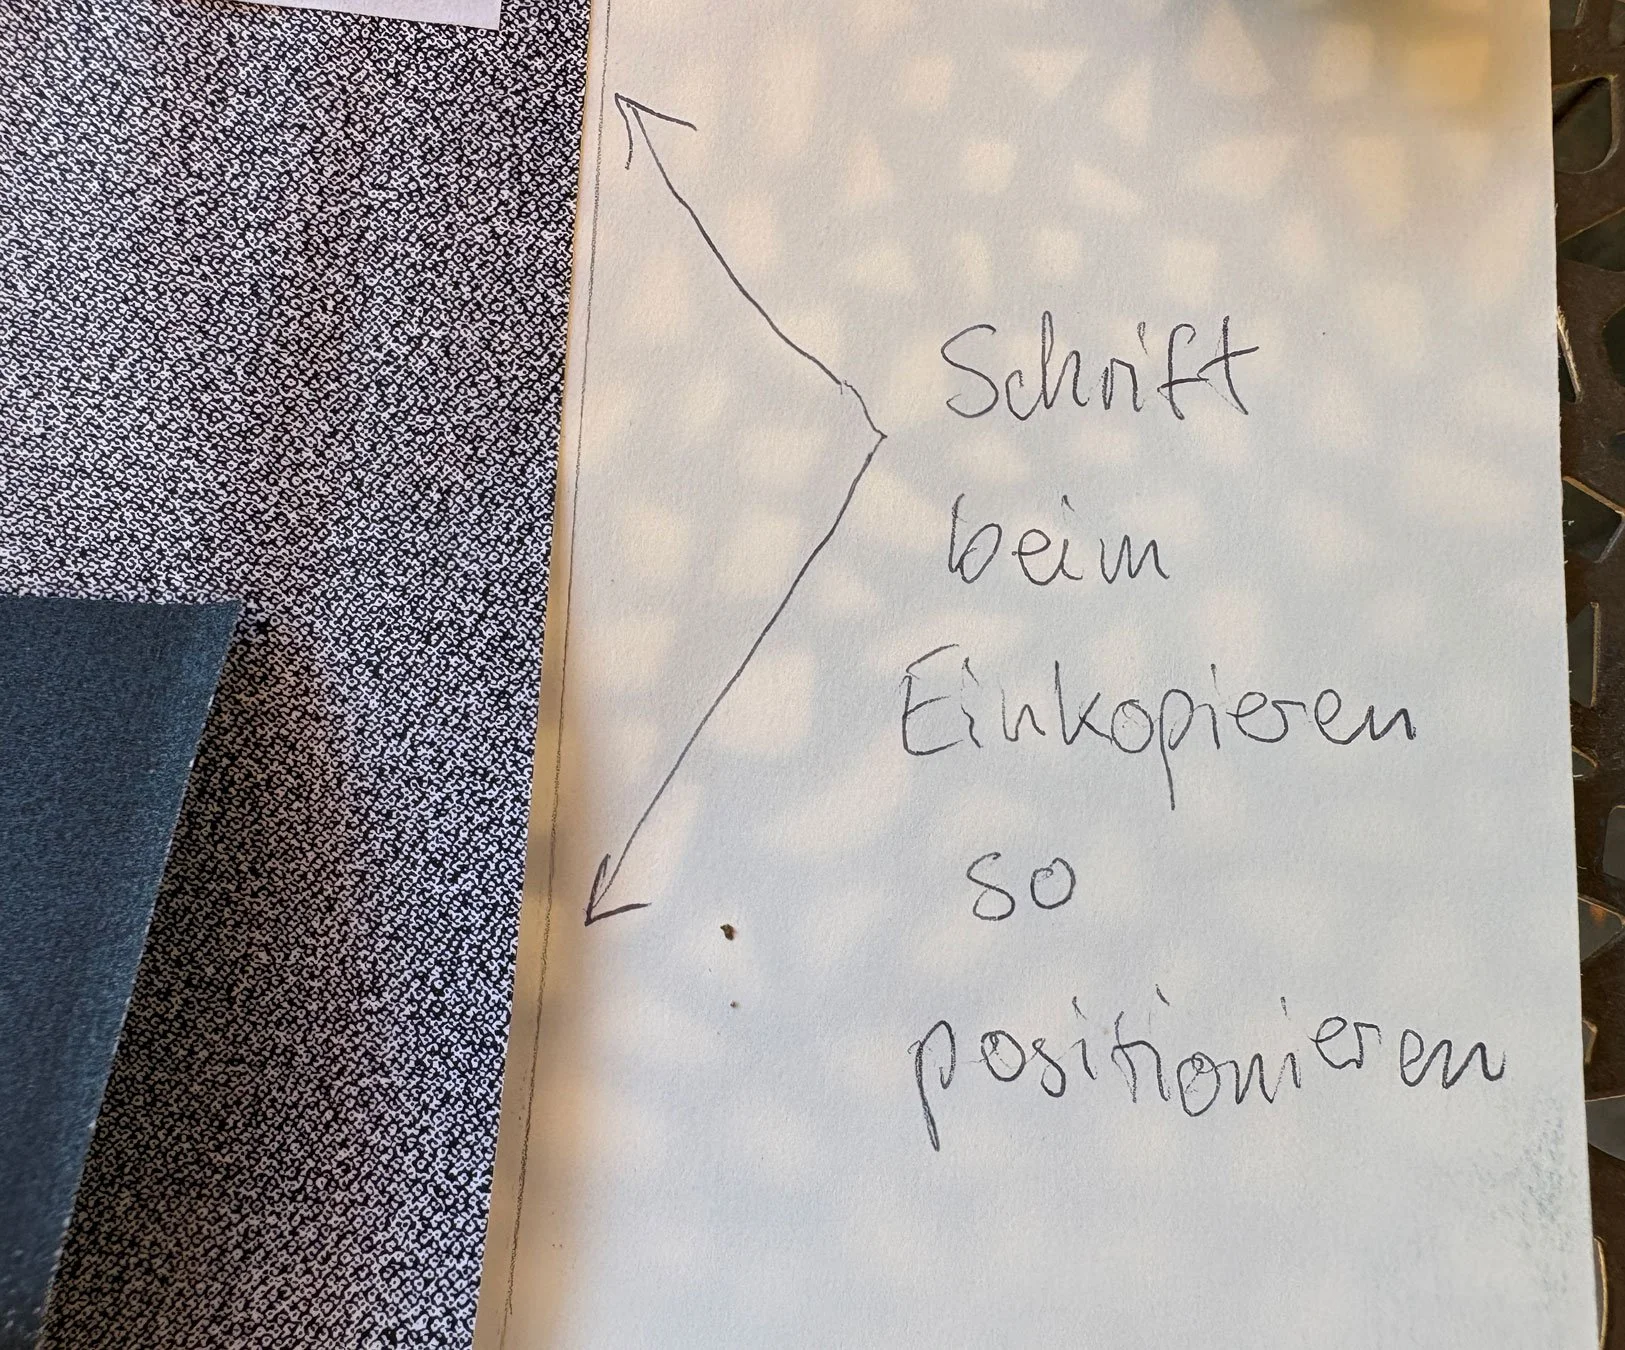 Schrift
beim
Einkopieren
so
positionieren